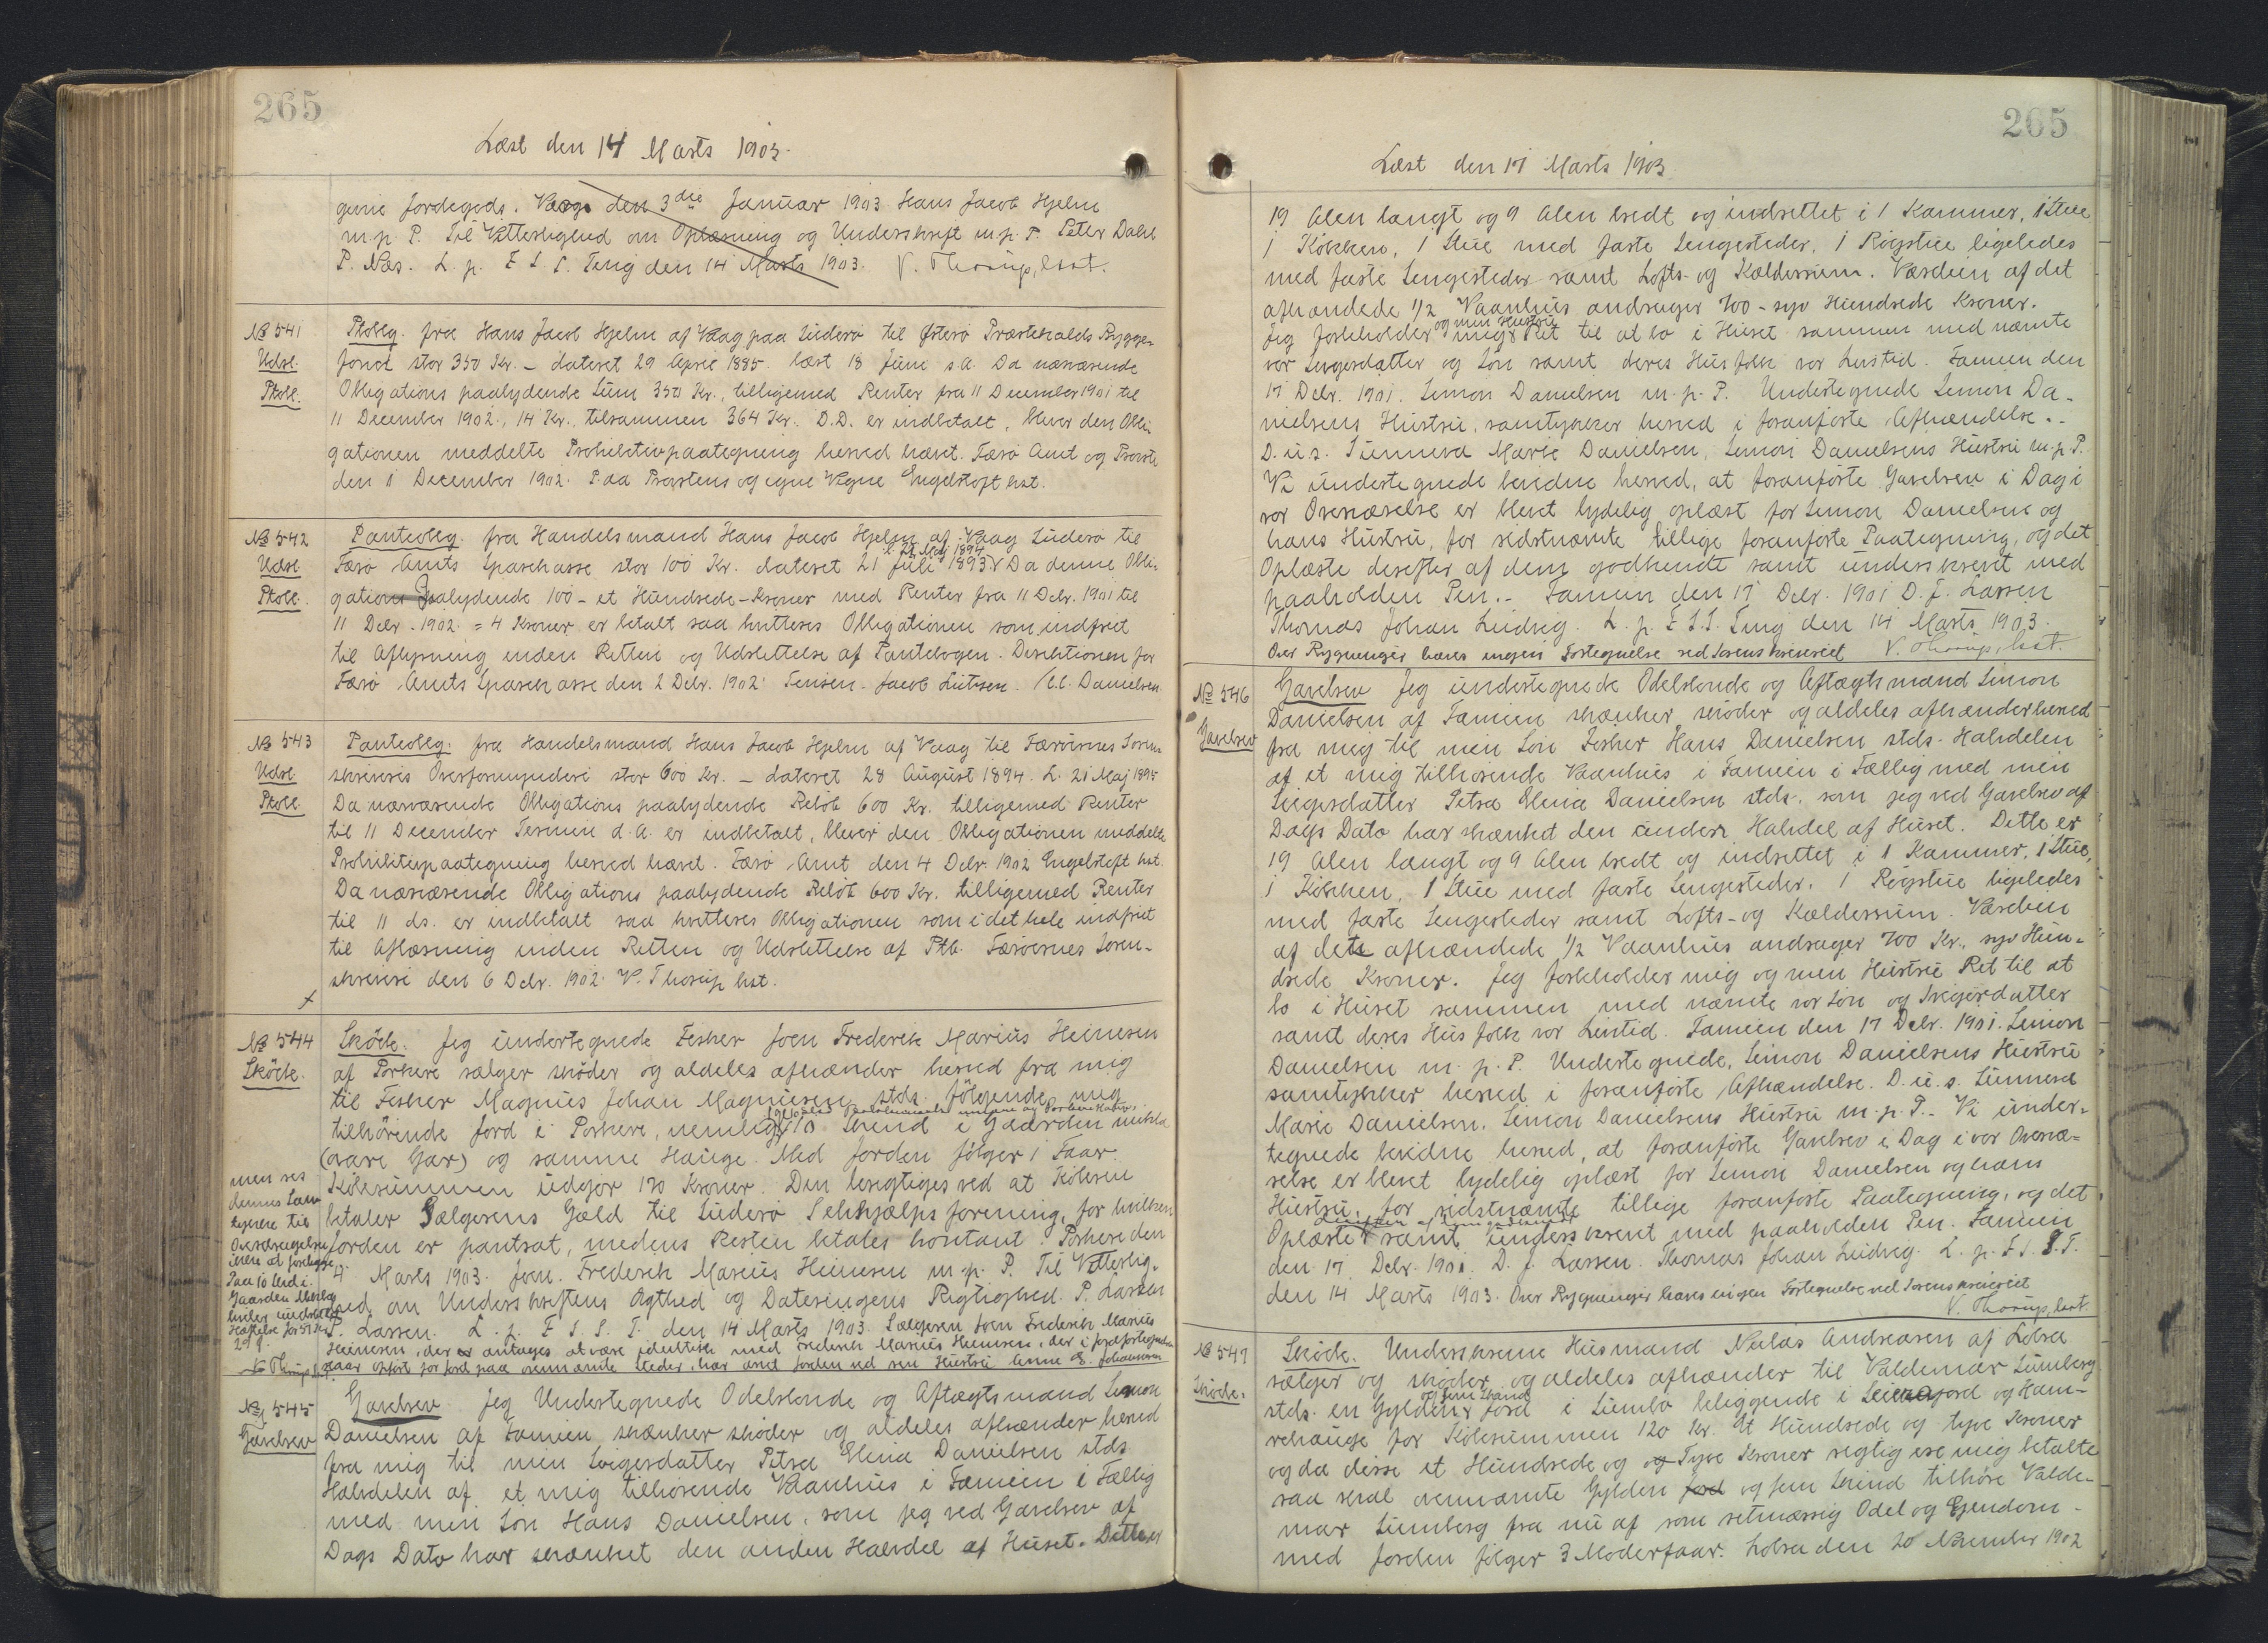 265
Læst den 14 Marts 1903.
gerne Jordegods. Vaag den 3die Januar 1903 Hans Jacob Hjelm
m.p. P. Til Vitterlighed om Oplæsning og Underskrift m.p. P. Peter Dahl
P. Næs. L. p. F S S. Ting den 14 Marts 1903. V. Thorup, kst.
№ 541
Udsl.
Ptobl.
Ptoblg. fra Hans Jacob Hjelm af Vaag paa Suderø til Østerø Præstekalds Bygge-
fond stor 350 Kr. - dateret 29 April 1885 læst 18 Juni s.A. Da nærværende
Obligations paalydende Sum 350 Kr., tilligemed Renter fra 11 December 1901 til
11 December 1902, 14 Kr., tilsammen 364 Kr. D.D. er indbetalt, bliver den Obli-
gationen meddelte Prohibitivpaategning herved hævet. Færø Amt og Provsti
den 1 December 1902. Paa Provstens og egne Vegne Engelstoft kst.
№ 542
Udsl.
Ptobl.
Panteoblg. fra Handelsmand Hans Jacob Hjelm af Vaag Suderø til
Færø Amts Sparekasse stor 100 Kr. dateret 21 Juli 1893 l. 28 Maj 1894 Da denne Obli-
gations Paalydende 100 - et Hundrede - Kroner med Renter fra 11 Decbr. 1901 til
11 Decbr. 1902 = 4 Kroner er betalt saa kvitteres Obligationen som indfriet
til Aflysning inden Retten og Udslettelse af Pantebogen. Direktionen for
Færø Amts Sparekasse den 2 Decbr. 1902 Jensen. Jacob Lützen. C.C. Danielsen
№ 543
Udsl.
Ptobl.
Panteoblg. fra Handelsmand Hans Jacob Hjelm af Vaag til Færøernes Soren-
skriveris Overformynderi stor 600 Kr. - dateret 28 August 1894. L. 21 Maj 1895
Da nærværende Obligations paalydende Beløb 600 Kr. tilligemed Renter
til 11 December Termin d.A. er indbetalt, bliver den Obligationen meddelte
Prohibitivpaategning herved hævet. Færø Amt den 4 Decbr 1902 Engelstoft kst.
Da nærværende Obligations paalydende Beløb 600 Kr. tilligemed Renter
til 11 ds. er indbetalt saa kvitteres Obligationen som i det hele indfriet
til Aflæsning inden Retten og Udslettelse af Ptb. Færøernes Soren-
skriveri den 6 Decbr. 1902 V. Thorup kst.
№ 544
Skøde.
Skøde. Jeg undertegnede Fisker Joen Frederik Marius Heinesen
af Porkere sælger skøder og aldeles afhænder herved fra mig
til Fisker Magnus Johan Magnussen stds. følgende mig
tilhørende Jord i Porkere, nemlig 10 Skind i Gaarden
(ovare Gar) og samme Hauge. Med Jorden følger 1 Faar.
Købesummen udgør 170 Kroner. Den berigtiges ved at Køberen
betaler Sælgerens Gæld til Suderø Selvhjælpsforening, for hvilken
Jorden er pantsat, medens Resten betales kontant. Porkere den
4 Marts 1903. Joen Frederik Marius Heinesen m.p. P. Til Vitterlig-
hed om Underskriftens Ægthed og Dateringens Rigtighed. P. Larsen
P. Lassen. L. p. F S S. T. den 14 Marts 1903. Sælgeren Joen Frederik Marius
Heinesen, der antages at være identisk med Frederik Marius Heinesen, der i Jordfortegnelsen
staar opført for Jord paa ovennævnte Steder, har arvet Jorden ved sin Hustru Anne E. Johannesen
men ses
dennes Sam
tykke til
Overdragelsen
ikke at foreligge.
Paa 10 Skd i
Gaarden
hviler
Hæftelse for 59 Kr
29 Ø.
V. Thorup kst.
№ 545
Gavebrev
Gavebrev Jeg Undertegnede Odelsbonde og Aftægtsmand Simon
Danielsen af Famien skænker skøder og aldeles afhænder herved
fra mig til min Svigerdatter Petra Elina Danielsen stds
Halvdelen af et mig tilhørende Vaanhus i Famien i Fællig
med min Søn Hans Danielsen, som jeg ved Gavebrev af
Dags Dato har skænket den anden Halvdel af Huset. Dette er
265
Læst den 14 Marts 1903
19 Alen langt og 9 Alen bredt og indrettet i 1 Kammer, 1 Stue
1 Køkken, 1 Stue med faste Sengesteder, 1 Røgstue ligeledes
med faste Sengesteder samt Lofts- og Kælderrum. Værdien af det
afhændede 1/2 Vaanhus andrager 700 - syv Hundrede Kroner.
Jeg forbeholder mig og min Hustru Ret til at bo i Huset sammen med nævnte
vor Svigerdatter og Søn samt deres Husfolk vor Livstid. Famien den
17 Decbr. 1901. Simon Danielsen m.p. P. Undertegnede Simon Da-
nielsens Hustru, samtykker herved i foranførte Afhændelse.-
D.u.s. Sunneva Marie Danielsen, Simon Danielsens Hustru m.p. P.
Vi undertegnede bevidne herved, at foranførte Gavebrev i Dag i
vor Overværelse er blevet lydelig oplæst for Simon Danielsen og
hans Hustru, for sidstnævnte tillige foranførte Paategning, og det
Oplæste derefter af dem godkendt samt underskrevet med
paaholden Pen.- Famien den 17 Decbr. 1901 D. J. Lassen
Thomas Johan Ludvig. L. p. F S S. Ting den 14 Marts 1903.
Over Bygninger haves ingen Fortegnelse ved Sorenskriveriet V. Thorup, kst.
№ 546
Gavebrev
Gavebrev Jeg undertegnede Odelsbonde og Aftægtsmand Simon
Danielsen af Famien skænker skøder og aldeles afhænder herved
fra mig til min Søn Fisker Hans Danielsen stds. Halvdelen
af et mig tilhørende Vaanhus i Famien i Fællig med min
Svigerdatter Petra Elina Danielsen stds. som jeg ved Gavebrev af
Dags Dato har skænket den anden Halvdel af Huset. Dette er
19 Alen langt og 9 Alen bredt og indrettet i 1 Kammer, 1 Stue,
1 Køkken, 1 Stue med faste Sengesteder. 1 Røgstue ligeledes
med faste Sengesteder samt Lofts- og Kælderrum. Værdien
af dets afhændede 1/2 Vaanhus andrager 700 Kr., syv Hun-
drede Kroner. Jeg forbeholder mig og min Hustru Ret til at
bo i Huset sammen med nævnte vor Søn og Svigerdatter
samt deres Husfolk vor Livstid. Famien den 17 Decbr. 1901. Simon
Danielsen m. p. P. Undertegnede, Simon Danielsens Hustru
samtykker herved i foranførte Afhændelse. D.u.s. Sunneva
Marie Danielsen. Simon Danielsens Hustru m.p. P.- Vi under-
tegnede bevidne herved, at foranførte Gavebrev i Dag i vor Overvæ-
relse er blevet lydelig oplæst for Simon Danielsen og hans
Hustru, for sidstnævnte tillige foranførte Paategning, og det
Oplæste derefter af dem godkendt samt underskrevet med paaholden Pen. Famien
den 17 Decbr. 1901. D. J. Lassen. Thomas Johan Ludvig. L. p. F. S. S. T.
den 14 Marts 1903. Over Bygninger haves ingen Fortegnelse ved Sorenskriveriet
V. Thorup, kst.
№ 547
Skøde.
Skøde. Underskrevne Husmand Niclas Andreasen af Lobra
sælger og skøder og aldeles afhænder til Valdemar Lumberg
stds. en Gylden og fem Skind Jord i Sumbø beliggende i og Ham-
rehauge for Købesummen 120 Kr. Et Hundrede og tyve Kroner
og da disse et Hundrede og og Tyve Kroner rigtig ere mig betalte
saa skal ovennævnte Gylden Jord og fem Skind tilhøre Valde-
mar Lumberg fra nu af som retmæssig Odel og Ejendom -
med Jorden følger 3 Moderfaar. Lobra den 20 November 1902